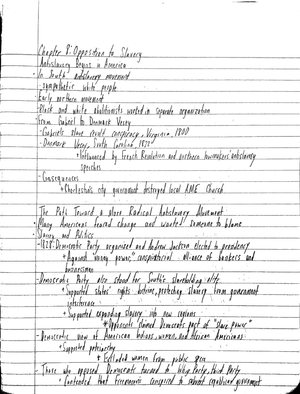 Chapter 8: Opposition to Slavery
Antislavery Begins in America
- In South antislavery movement
- sympathetic white people
- Early northern movement
- Black and white abolitionists worked in separate organization
- From Gabriel to Denmark Vesey
- Gabriel's slave revolt conspiracy, Virginia, 1800
- Denmark Vesey, South Carolina, 1822
* Influenced by French Revolution and northern antislavery
speeches
- Consequences
* Charleston's city government destroyed local AME Church
The Path Toward a More Radical Antislavery Movement
- Many Americans feared change and wanted someone to blame
- Slavery and Politics
- 1828: Democratic Party organized and Andrew Jackson elected to presidency
* Against "money power," conspiratorial alliance of bankers and
businessmen
- Democratic Party also stood for South's slaveholding elite
* Supported states' rights doctrine, protecting slavery from government
interference
* Supported expanding slavery into new regions
* Opponents named Democratic part of "slave power"
- Democratic view of American Indians, women, and African Americans
* Supported patriarchy
* Excluded women from public
- Those who opposed Democrats turned to Whig Party, third Party
* Contended that Freemasons conspired to subvert republican government